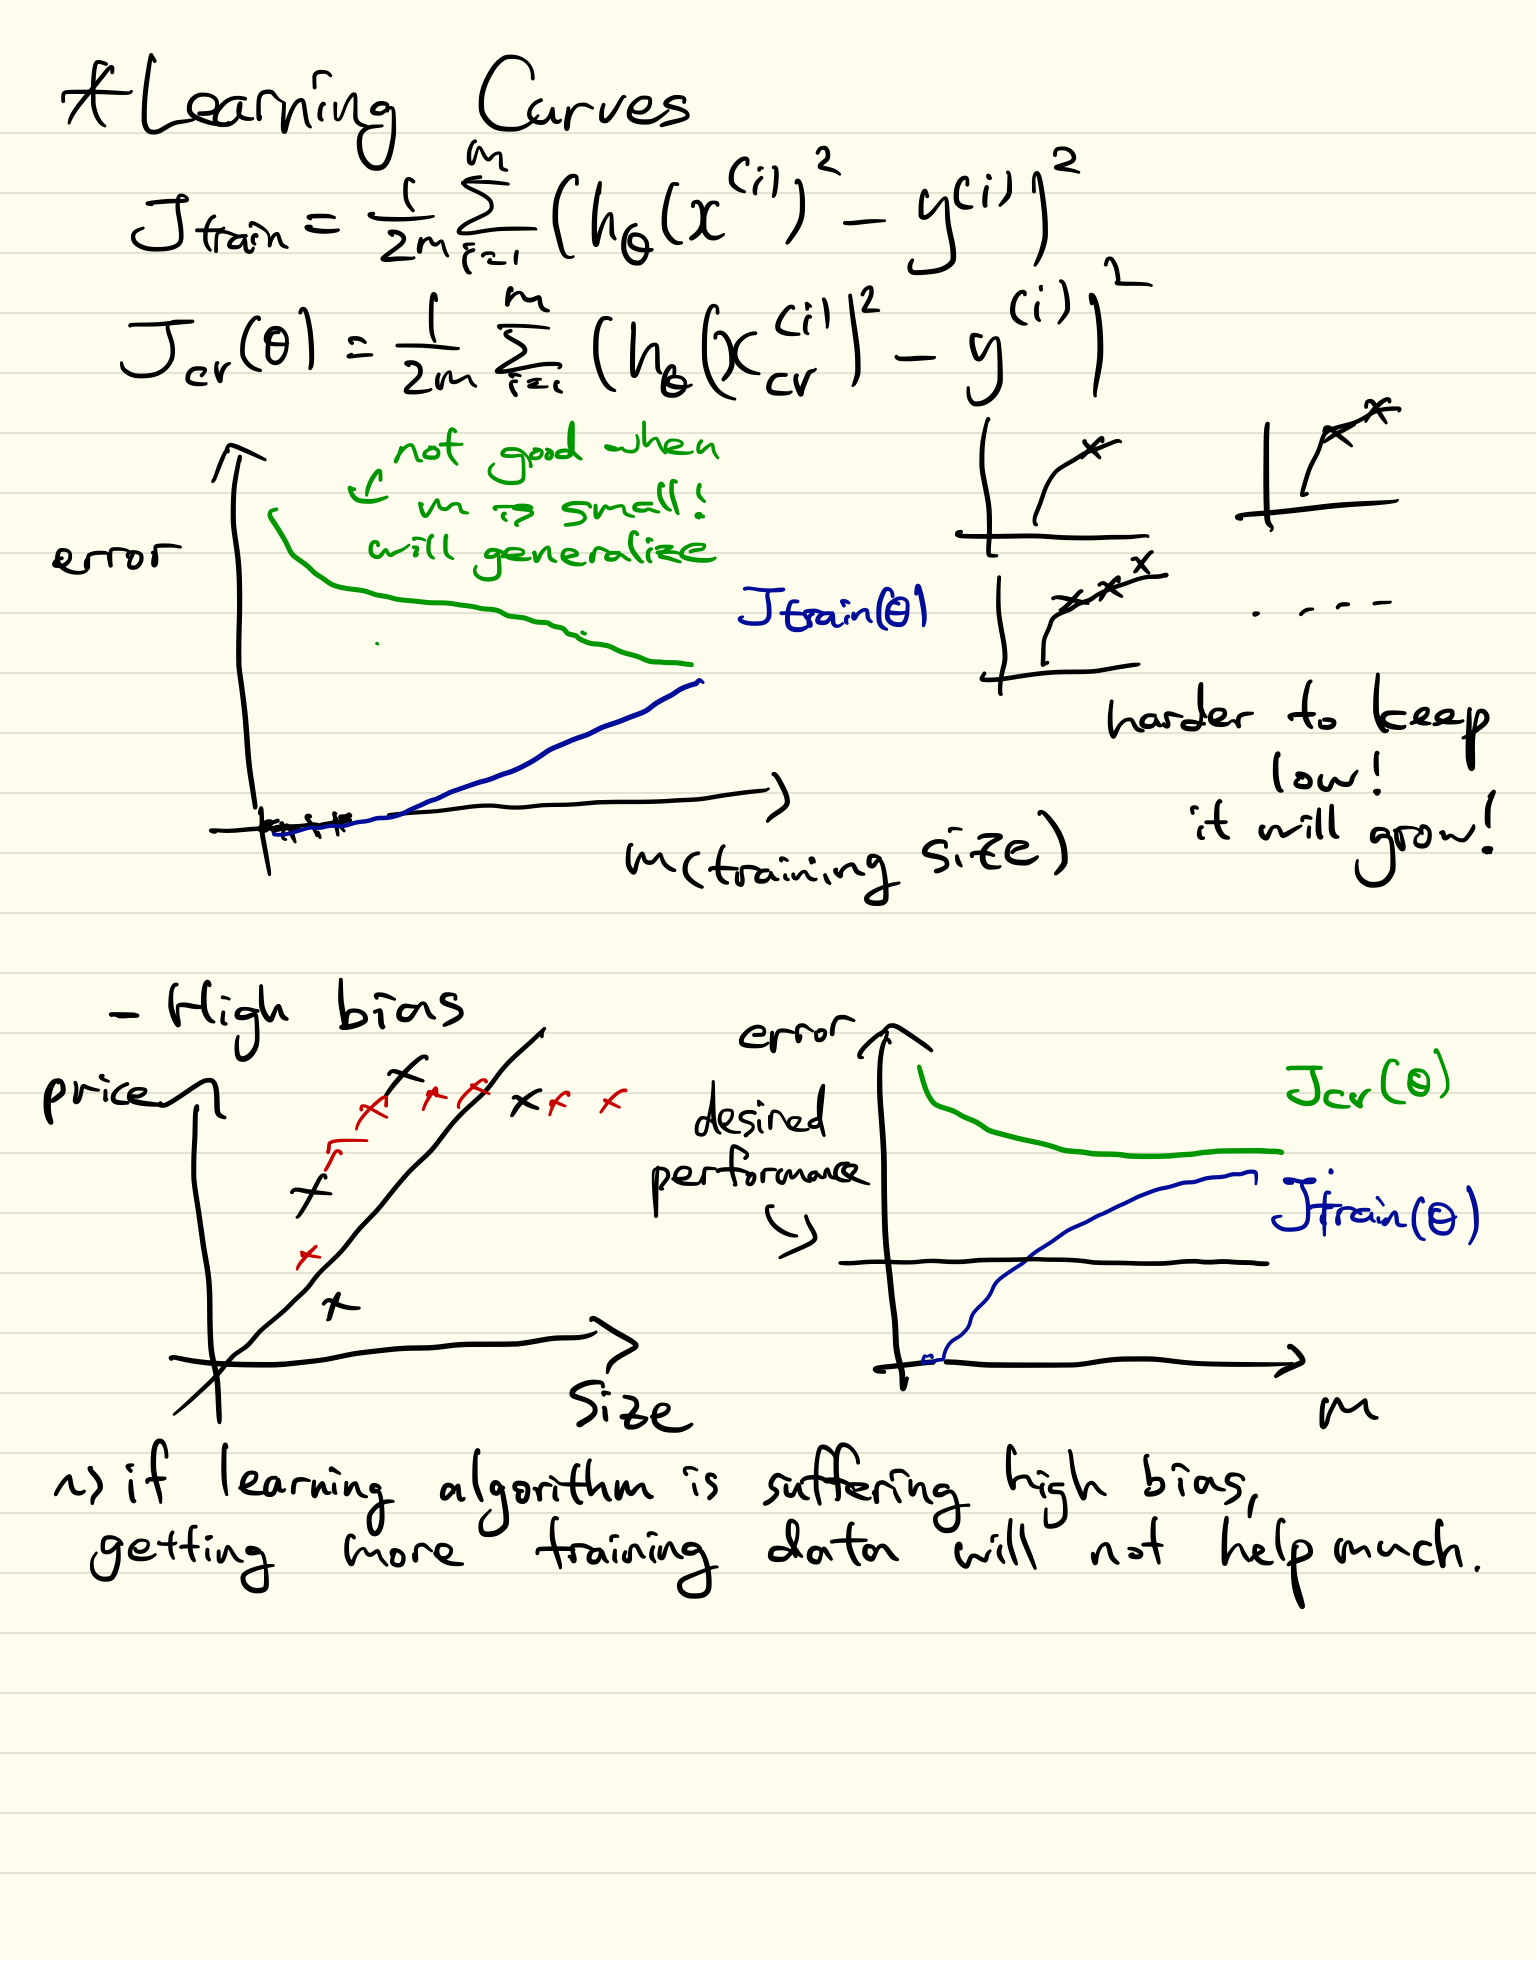 * Learning Curves
J train = 1/2m Σ_{i=1}^{m} (h_θ(x^{(i)})^2 − y^{(i)})^2
J_cv(θ) = 1/2m Σ_{i=1}^{m} (h_θ(x_cv^{(i)})^2 − y^{(i)})^2
not good when
m is small!
will generalize
error
J train(θ)
harder to keep
low!
it will grow!
m(training size)
- High bias
price
size
error
desired
performance
J_cv(θ)
J train(θ)
m
~> if learning algorithm is suffering high bias,
getting more training data will not help much.